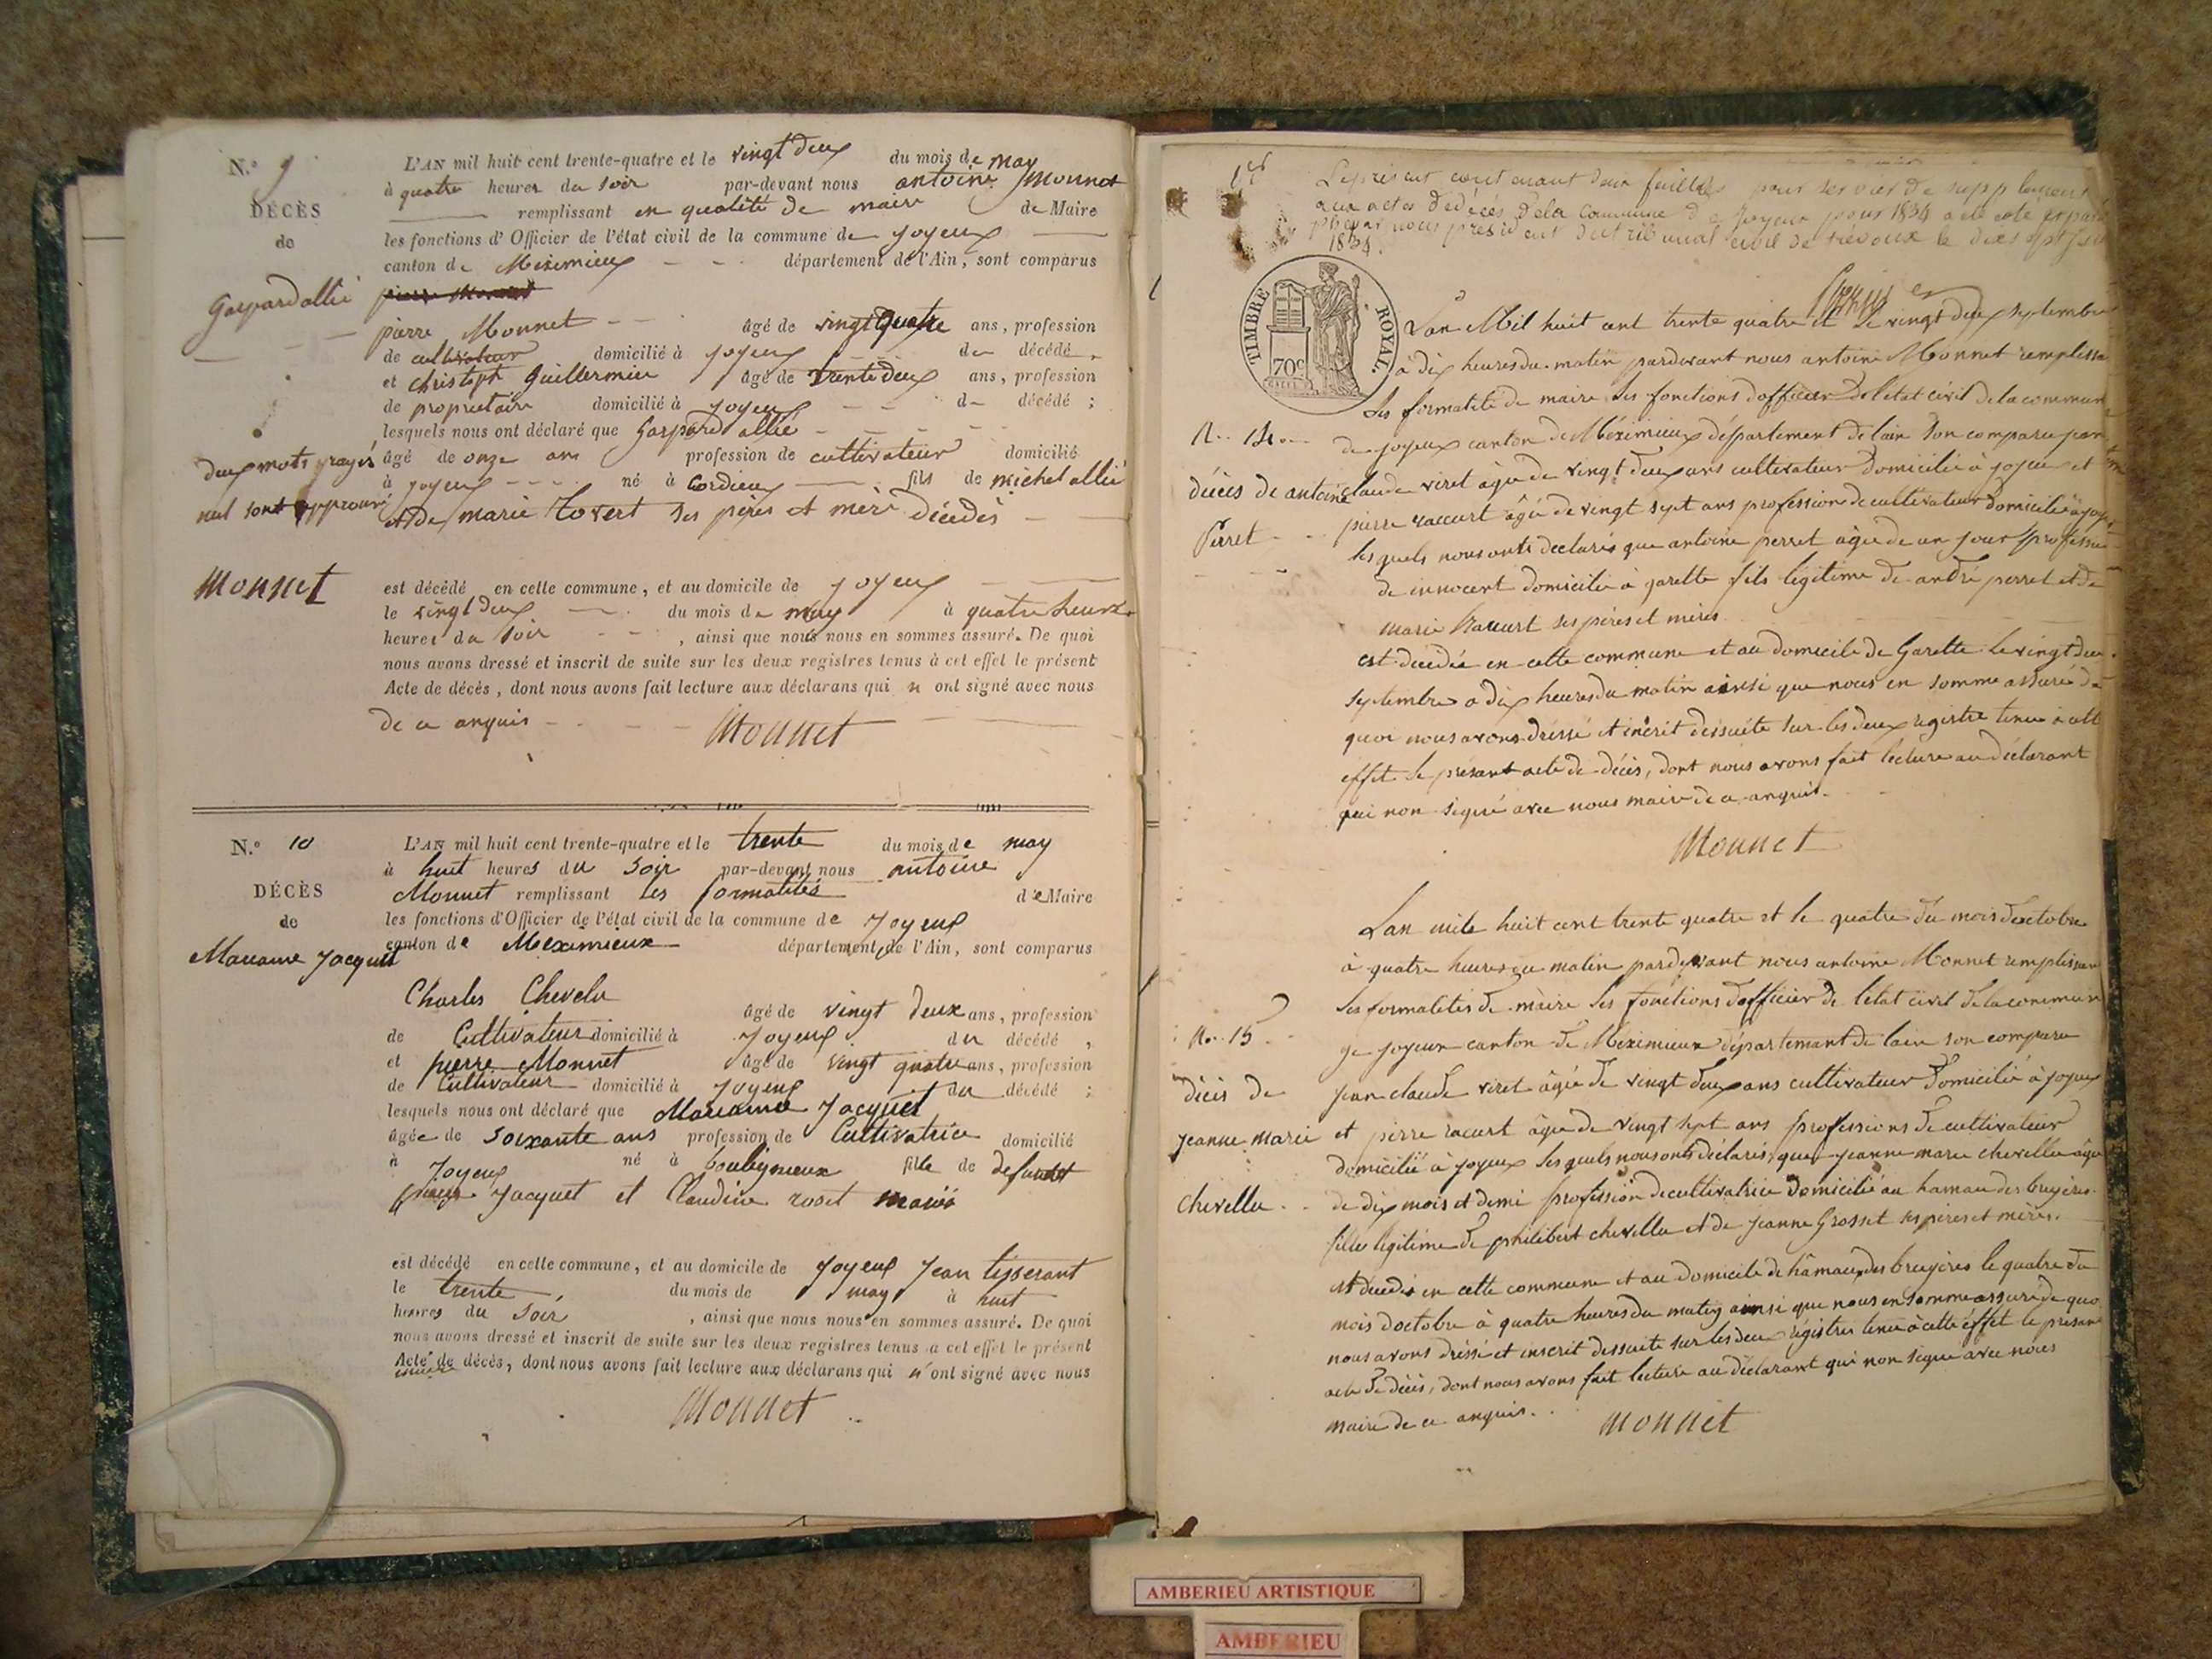 N.° 9
DÉCÈS
de
Gaspard allié
deux mots rayés
nul sont approuvé
Monnet
L'AN mil huit cent trente-quatre et le vingt deux du mois de may
à quatre heures du soir par-devant nous antoine Monnet
remplissant en qualité de maire de Maire
les fonctions d'Officier de l'état civil de la commune de joyeux
canton de Meximieux département de l'Ain, sont comparus
pierre Monnet
pierre Monnet âgé de vingt quatre ans, profession
de cultivateur domicilié à joyeux du décédé,
et christoph guillermin âgé de trente deux ans, profession
de proprietaire domicilié à joyeux du décédé;
lesquels nous ont déclaré que Gaspard allié
âgé de onze ans profession de cultivateur domicilié
à joyeux né à Cordieux fils de michel allié
et de marie tovert ses pères et mère décédés
est décédé en cette commune, et au domicile de joyeux
le vingt deux du mois de may à quatre heures
heures du soir, ainsi que nous nous en sommes assuré. De quoi
nous avons dressé et inscrit de suite sur les deux registres tenus à cet effet le présent
Acte de décès, dont nous avons fait lecture aux déclarans qui n ont signé avec nous
de ce anquis
Monnet
N.° 10
DÉCÈS
de
Marianne Jacquet
L'AN mil huit cent trente-quatre et le trente du mois de may
à huit heures du soir par-devant nous antoine
Monnet remplissant les formalités de Maire
les fonctions d'Officier de l'état civil de la commune de Joyeux
canton de Meximieux département de l'Ain, sont comparus
Charles Chevelu
âgé de vingt deux ans, profession
de Cultivateur domicilié à Joyeux du décédé,
et pierre Monnet âgé de vingt quatre ans, profession
de Cultivateur domicilié à Joyeux du décédé;
lesquels nous ont déclaré que Marianne Jacquet
âgée de soixante ans profession de Cultivatrice domicilié
à Joyeux né à bouligneux fille de defunt
Jacquet et Claudine roset mariés
est décédé en cette commune, et au domicile de Joyeux Jean tisserant
le trente du mois de may à huit
heures du soir, ainsi que nous nous en sommes assuré. De quoi
nous avons dressé et inscrit de suite sur les deux registres tenus à cet effet le présent
Acte de décès, dont nous avons fait lecture aux déclarans qui n'ont signé avec nous
Monnet
Le présent contenant deux feuilles pour servir de supplement
aux actes de décès de la Commune de Joyeux pour 1834 a été coté et paraphé
par nous president du tribunal civil de trévoux le dix sept
1834.
TIMBRE ROYAL.
70c
N.. 14.
décès de antoine
Perret
Lan Mil huit cent trente quatre et le vingt deux septembre
à dix heures du matin pardevant nous antoine Monnet remplissa
les formalité de maire les fonctions dofficier de letat civil de la commun
de joyeux canton de Meximieux département de lain son comparu jean
claude viret âgé de vingt deux ans cultivateur domicilié à joyeux et
pierre raccurt âgé de vingt sept ans profession de cultivateur domicilié à joyeux
les quels nous onts declarés que antoine perret âgé de un jour profession
de innocent domicilié à garette fils legitime de andré perret et de
marie Raccurt ses pères et mères
est décédé en cette commune et au domicile de Garette le vingt deux
septembre a dix heures du matin ainsi que nous en somme assuré de
quoi nous avons dressé et inscrit dessuite sur les deux registre tenu à cett
effet le présant acte de décès, dont nous avons fait lecture au déclarant
qui non signé avec nous maire de ce anquis.
Monnet
No. 15
décès de
jeanne marie
chevellu
Lan mile huit cent trente quatre et le quatre du mois doctobre
à quatre heures du matin pardevant nous antoine Monnet remplissan
les formalités de maire les fonctions dofficier de letat civil de la commun
de joyeux canton de Meximieux département de lain son comparu
jean claude viret âgé de vingt deux ans cultivateur domicilié à joyeux
et pierre racurt âgé de vingt sept ans professions de cultivateur
domicilié à joyeux les quels nous onts déclarés, que jeanne marie chevellu âgé
de dix mois et demi profession de cultivatrice domicilié au hamau des bruyères
fille legitime de philibert chevellu et de jeanne Grosset ses pères et mères.
est décédés en cette commune et au domicile de hâmaux des bruyères le quatre du
mois doctobre à quatre heures du matin ainsi que nous en somme assuré de quoi
nous avons dressé et inscrit dessuite sur les deux régistres tenu à cette éffet le présan
acte de décès, dont nous avons fait lecture au déclarant qui non signé avec nous
maire de ce anquis.
Monnet
AMBERIEU ARTISTIQUE
AMBERIEU